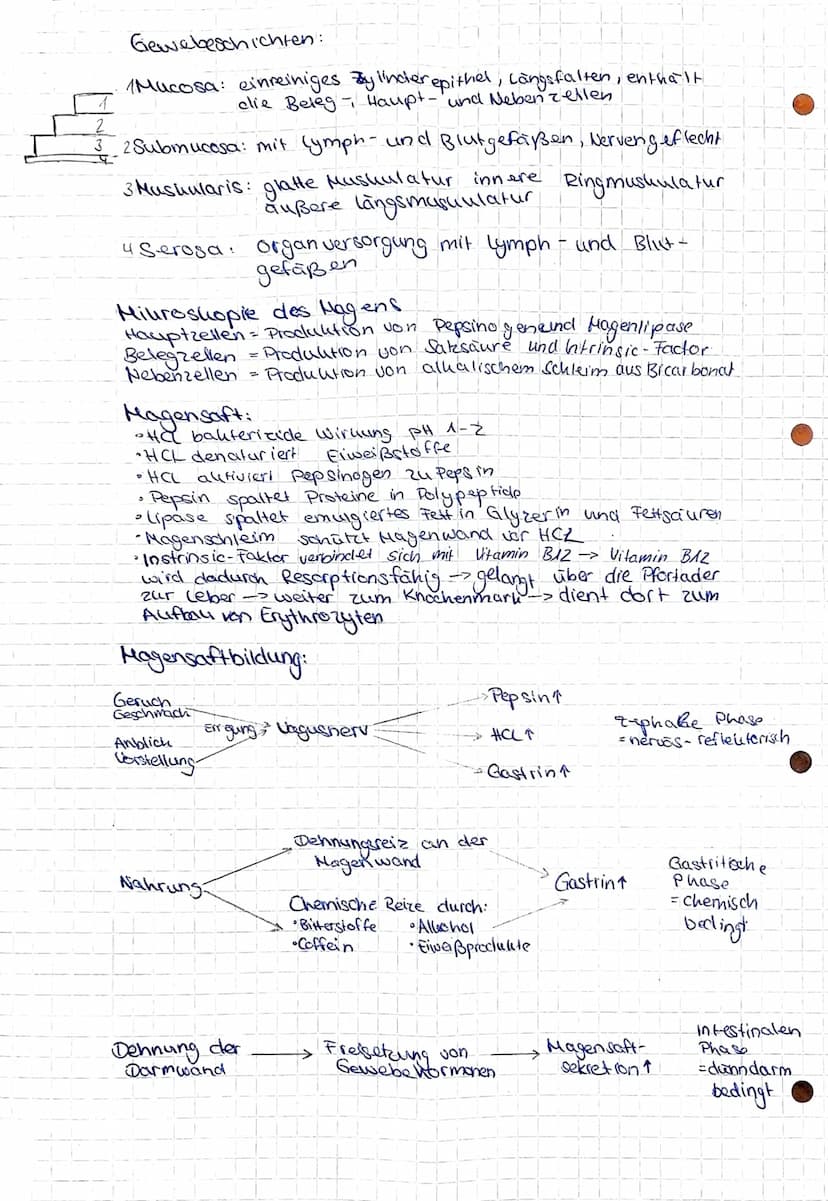 Gewebeschichten:
1 Mucosa: einreiniges Zylinderepithel, Längsfalten, enthält
die Beleg-, Haupt- und Nebenzellen
1
2
3
4
2 Submucosa: mit Lymph- und Blutgefäßen, Nervengeflecht
3 Muskularis: glatte Muskulatur innere Ringmuskulatur
äußere Längsmuskulatur
4 Serosa: Organversorgung mit Lymph- und Blut-
gefäßen
Mikroskopie des Magens
Hauptzellen = Produktion von Pepsinogen und Magenlipase
Belegzellen = Produktion von Salzsäure und Intrinsic-Factor
Nebenzellen = Produktion von alkalischem Schleim aus Bicarbonat
Magensaft:
• HCL bakterizide Wirkung pH 1-2
• HCL denaturiert Eiweißstoffe
• HCL aktiviert Pepsinogen zu Pepsin
• Pepsin spaltet Proteine in Polypeptide
• Lipase spaltet emulgiertes Fett in Glyzerin und Fettsäuren
• Magenschleim schützt Magenwand vor HCL
• Instrinsic-Faktor verbindet sich mit Vitamin B12 → Vitamin B12
wird dadurch Resorptionsfähig → gelangt über die Pfortader
zur Leber → weiter zum Knochenmark → dient dort zum
Aufbau von Erythrozyten
Magensaftbildung:
Geruch
Geschmack
Anblick
Vorstellung
Erregung → Vagusnerv
→ Pepsin↑
→ HCL↑
→ Gastrin↑
Phase
= nervös-reflektorisch
Nahrung
Dehnungsreiz an der
Magenwand
Chemische Reize durch:
• Bitterstoffe • Alkohol
• Coffein • Eiweißprodukte
Gastrin↑
Gastritische
Phase
= chemisch
bedingt
Dehnung der
Darmwand
→ Freisetzung von
Gewebehormonen
→ Magensaft-
sekretion↑
intestinalen
Phase
= dünndarm
bedingt